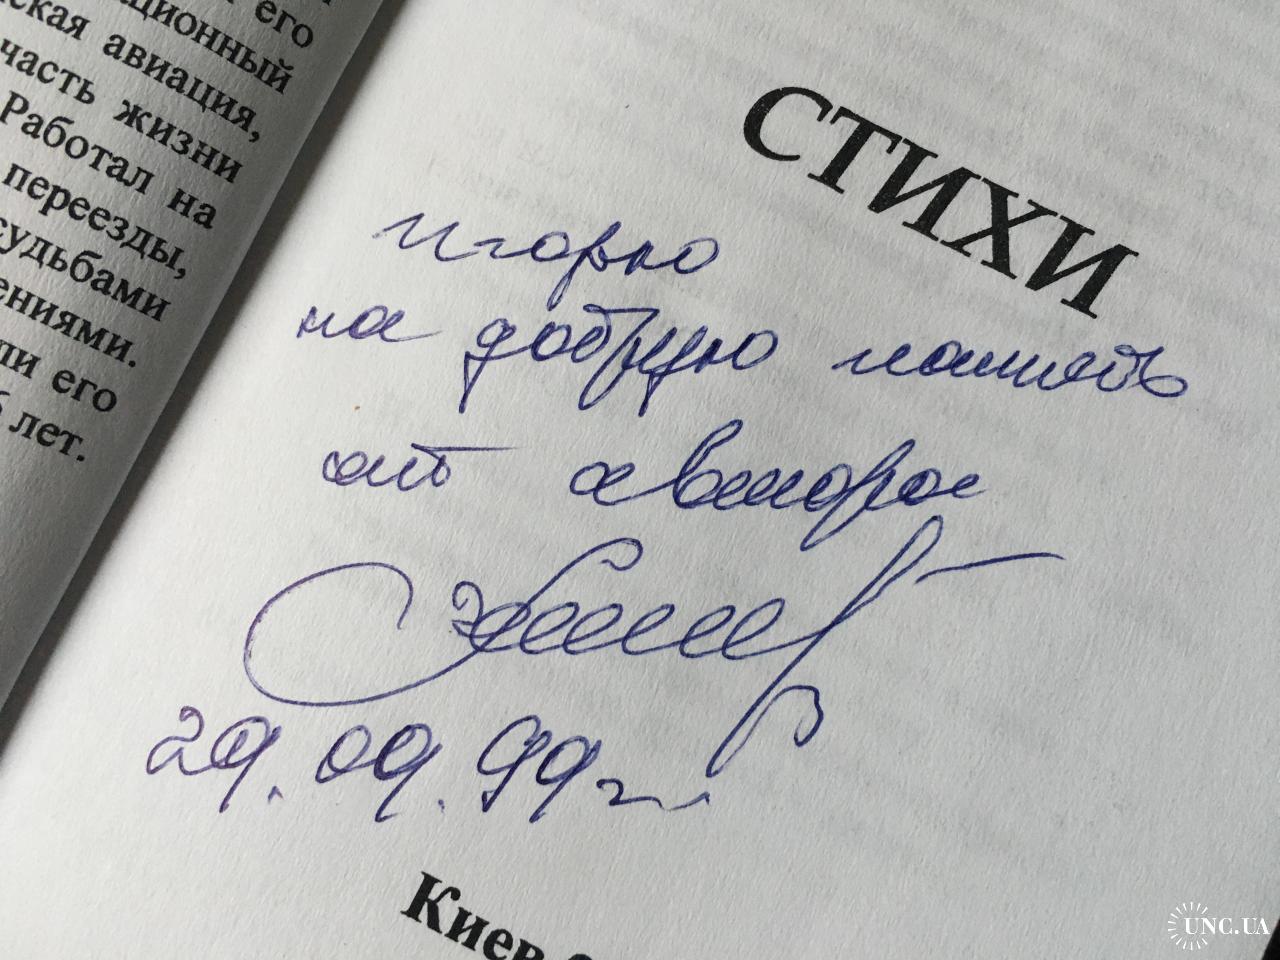 его
ационный
ская авиация,
часть жизни
Работал на
переезды,
судьбами
ениями.
ли его
лет.
СТИХИ
Игорю
на добрую память
от автора
29.09.99г.
Киев
UNC.UA